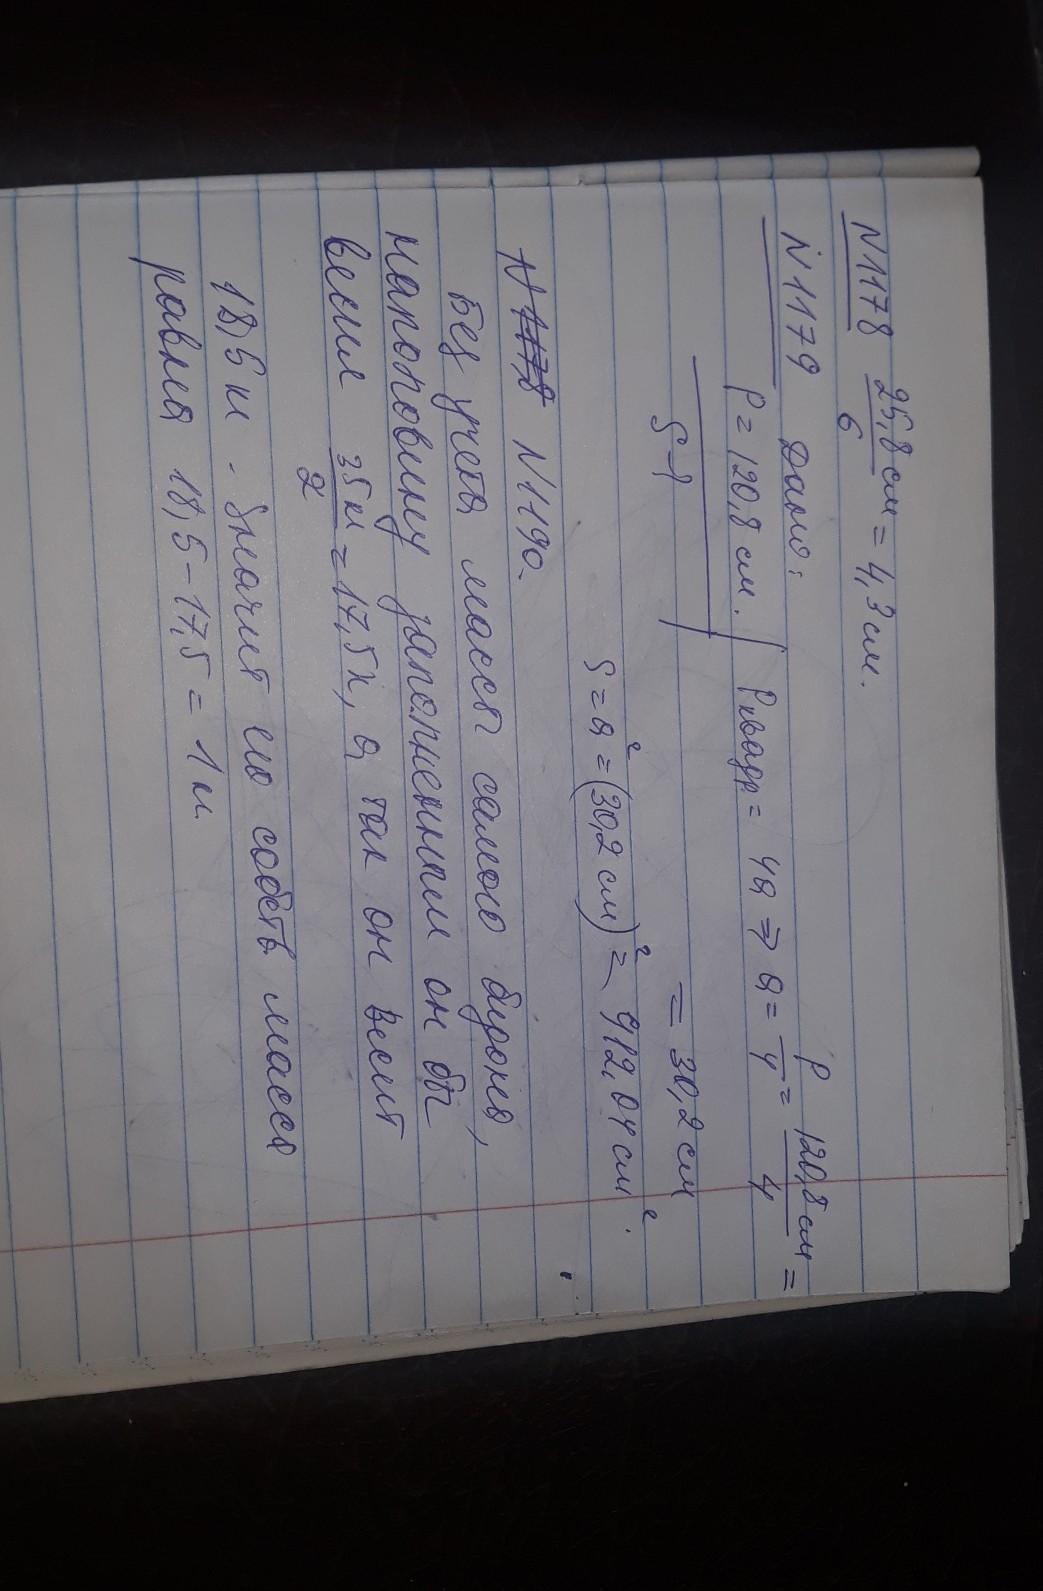 N1178 25,8 см/6 = 4,3 см.
N1179 Дано:
P = 120,8 см. Pквадр = 4a ⇒ a = P/4 = 120,8 см/4 =
S-? = 30,2 см
S = a² = (30,2 см)² = 912,04 см².
N1178 N1190.
Без учета массы самого бидона,
наполовину заполненным он бы
весил 35 кг/2 = 17,5 кг, а так он весит
18,5 кг - значит его собств масса
равна 18,5-17,5 = 1 кг